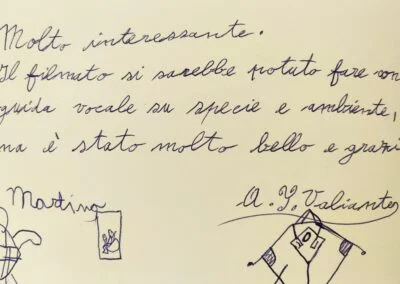 Molto interessante.
Il filmato si sarebbe potuto fare con
guida vocale su specie e ambiente,
ma è stato molto bello e grazi
Martina
A. P. Valiante